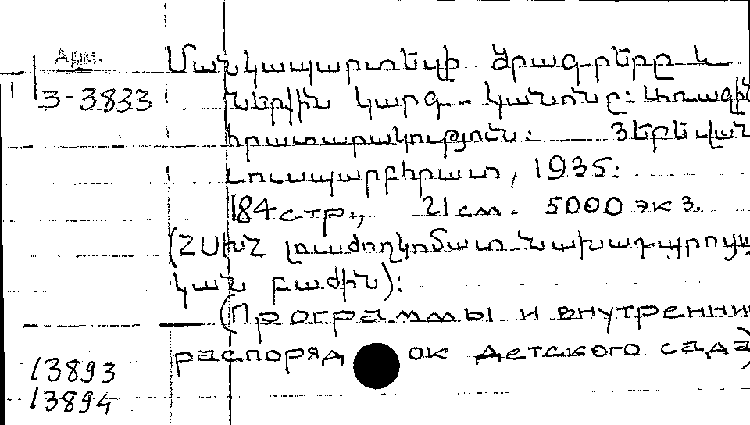 Арм.
3-3833
Մանկապարտեզի ծրագրերը և
ներքին կարգ-կանոնը: Առաջին
հրատարակություն: Յերեվան
Լուսպարբհրատ, 1935:
184 стр., 21 см. 5000 экз.
(ՀՍԽՀ լուսժողկոմատ նախադպրոցա
կան բաժին):
(Программы и внутренний
распорядок детского сада)
13893
13894